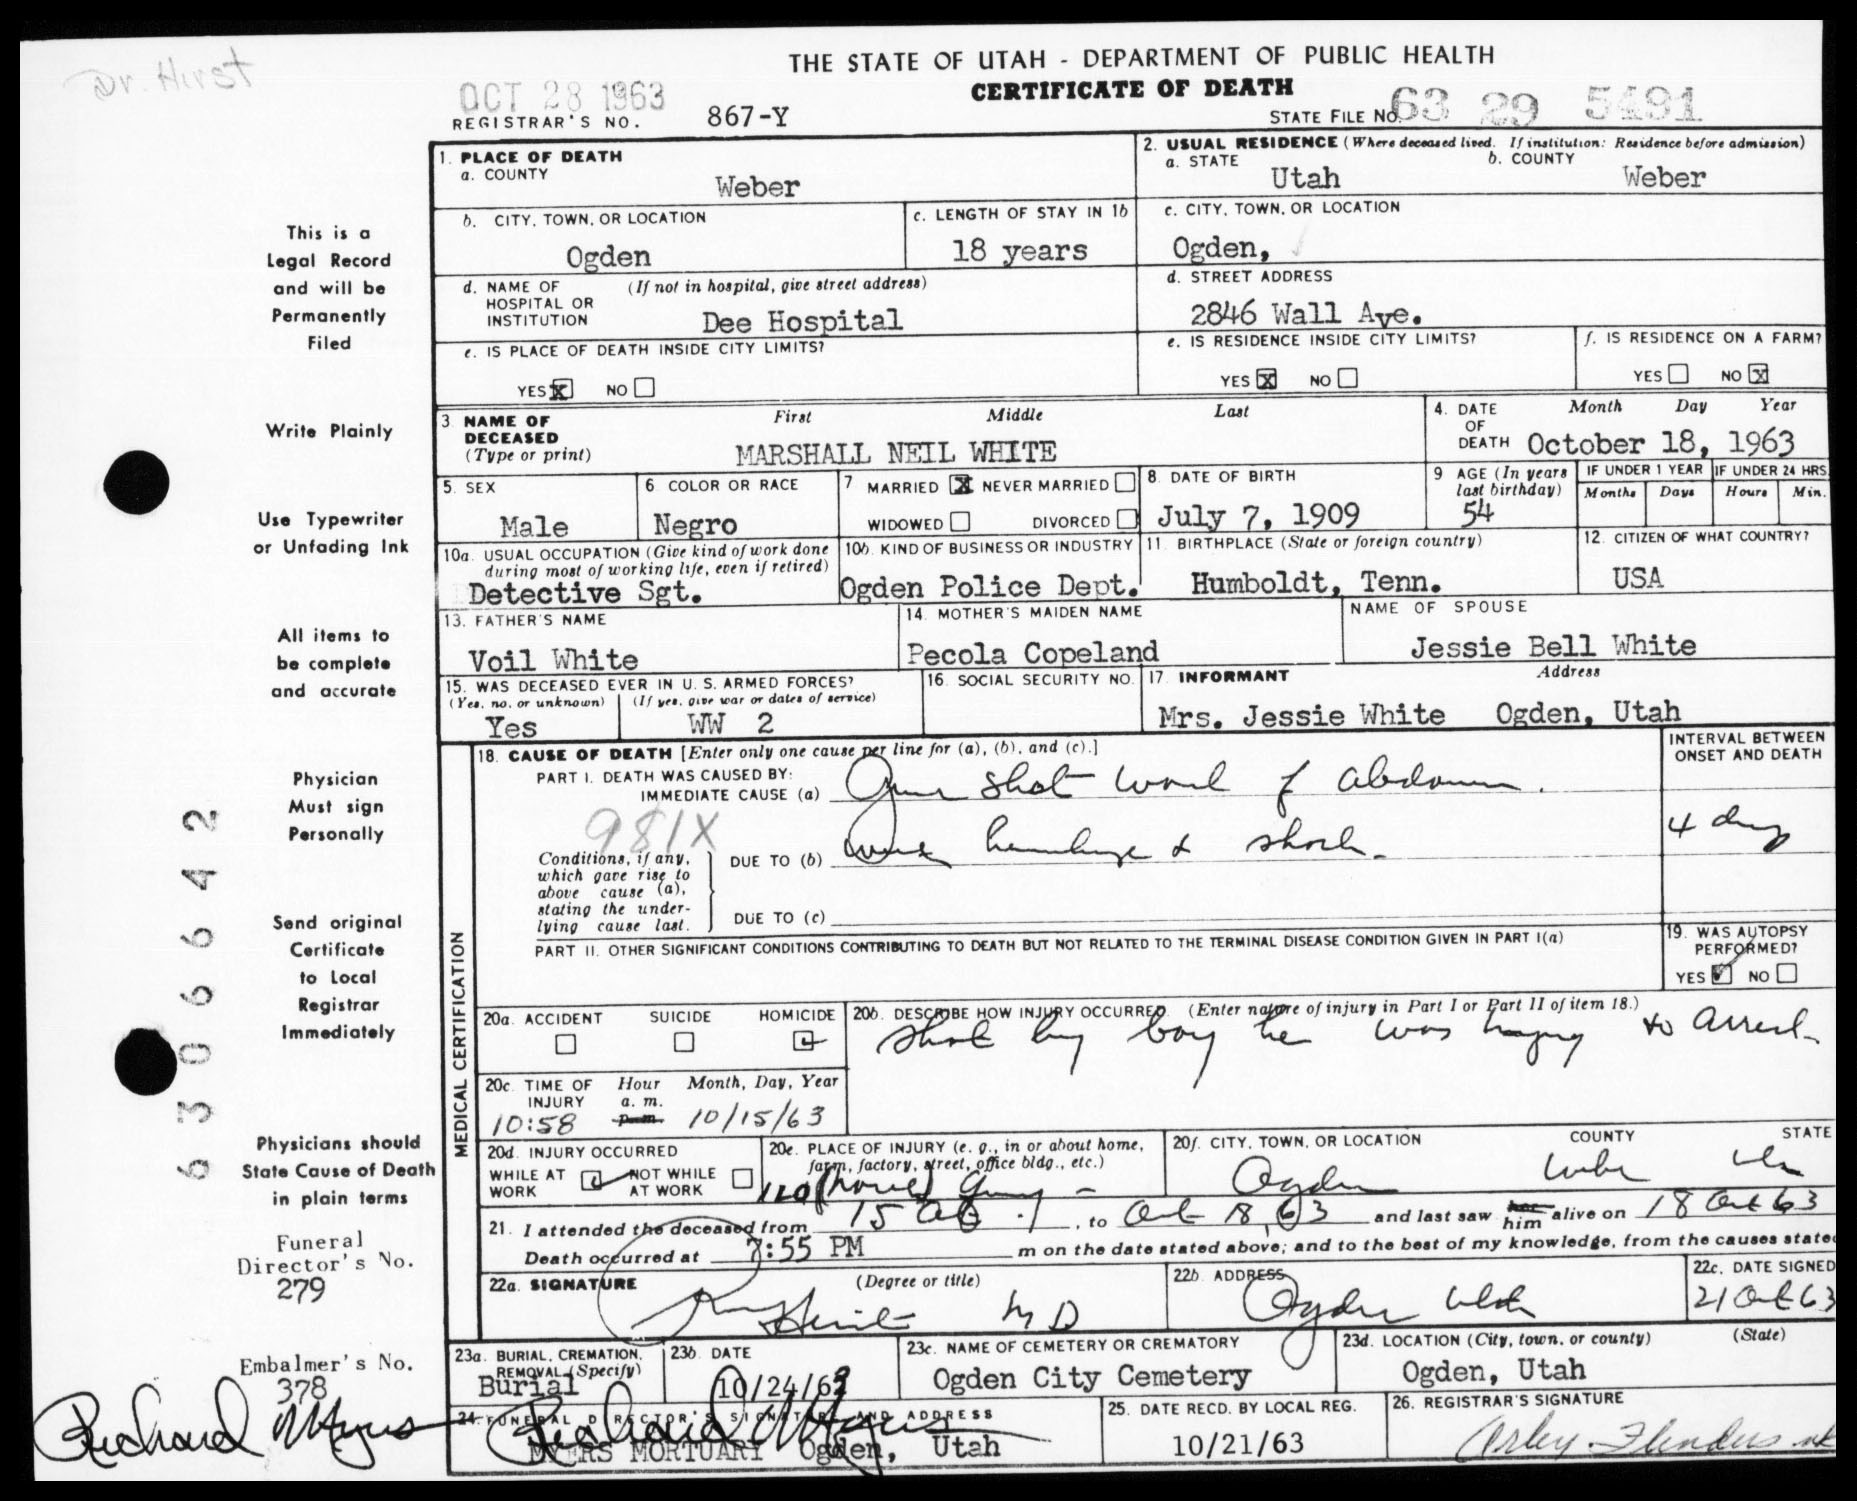 Dr. Hirst
THE STATE OF UTAH - DEPARTMENT OF PUBLIC HEALTH
CERTIFICATE OF DEATH
OCT 28 1963
REGISTRAR'S NO. 867-Y
STATE FILE NO. 63 29 5491
1. PLACE OF DEATH
a. COUNTY
Weber
2. USUAL RESIDENCE (Where deceased lived. If institution: Residence before admission)
a. STATE b. COUNTY
Utah Weber
b. CITY, TOWN, OR LOCATION
Ogden
c. LENGTH OF STAY IN 1b
18 years
c. CITY, TOWN, OR LOCATION
Ogden,
d. NAME OF HOSPITAL OR INSTITUTION (If not in hospital, give street address)
Dee Hospital
d. STREET ADDRESS
2846 Wall Ave.
e. IS PLACE OF DEATH INSIDE CITY LIMITS?
YES X NO
e. IS RESIDENCE INSIDE CITY LIMITS?
YES X NO
f. IS RESIDENCE ON A FARM?
YES NO X
3 NAME OF DECEASED (Type or print)
First Middle Last
MARSHALL NEIL WHITE
4. DATE OF DEATH
Month Day Year
October 18, 1963
5. SEX
Male
6. COLOR OR RACE
Negro
7 MARRIED X NEVER MARRIED
WIDOWED DIVORCED
8. DATE OF BIRTH
July 7, 1909
9 AGE (In years last birthday)
54
IF UNDER 1 YEAR
Months Days
IF UNDER 24 HRS.
Hours Min.
10a. USUAL OCCUPATION (Give kind of work done during most of working life, even if retired)
Detective Sgt.
10b. KIND OF BUSINESS OR INDUSTRY
Ogden Police Dept.
11. BIRTHPLACE (State or foreign country)
Humboldt, Tenn.
12. CITIZEN OF WHAT COUNTRY?
USA
13. FATHER'S NAME
Voil White
14. MOTHER'S MAIDEN NAME
Pecola Copeland
NAME OF SPOUSE
Jessie Bell White
15. WAS DECEASED EVER IN U. S. ARMED FORCES?
(Yes, no, or unknown) (If yes, give war or dates of service)
Yes WW 2
16. SOCIAL SECURITY NO.
17. INFORMANT Address
Mrs. Jessie White Ogden, Utah
MEDICAL CERTIFICATION
18. CAUSE OF DEATH [Enter only one cause per line for (a), (b), and (c).]
PART I. DEATH WAS CAUSED BY:
IMMEDIATE CAUSE (a) Gun shot wound of abdomen.
981X
Conditions, if any, which gave rise to above cause (a), stating the underlying cause last.
DUE TO (b) hemorrhage & shock.
DUE TO (c)
INTERVAL BETWEEN ONSET AND DEATH
4 days
PART II. OTHER SIGNIFICANT CONDITIONS CONTRIBUTING TO DEATH BUT NOT RELATED TO THE TERMINAL DISEASE CONDITION GIVEN IN PART I(a)
19. WAS AUTOPSY PERFORMED?
YES NO
20a. ACCIDENT SUICIDE HOMICIDE
20b. DESCRIBE HOW INJURY OCCURRED. (Enter nature of injury in Part I or Part II of item 18.)
Shot by boy he was trying to arrest.
20c. TIME OF INJURY Hour Month, Day, Year
a. m.
p. m.
10:58 10/15/63
20d. INJURY OCCURRED
WHILE AT WORK NOT WHILE AT WORK
20e. PLACE OF INJURY (e. g., in or about home, farm, factory, street, office bldg., etc.)
(house)
20f. CITY, TOWN, OR LOCATION COUNTY STATE
Ogden Weber Ut
21. I attended the deceased from 15 Oct, to Oct 18, 63 and last saw her him alive on 18 Oct 63
Death occurred at 7:55 PM m on the date stated above; and to the best of my knowledge, from the causes stated
22a. SIGNATURE (Degree or title)
Hirst MD
22b. ADDRESS
Ogden Utah
22c. DATE SIGNED
21 Oct 63
23a. BURIAL, CREMATION, REMOVAL (Specify)
Burial
23b. DATE
10/24/63
23c. NAME OF CEMETERY OR CREMATORY
Ogden City Cemetery
23d. LOCATION (City, town, or county) (State)
Ogden, Utah
24. FUNERAL DIRECTOR'S SIGNATURE AND ADDRESS
Richard Myers
MYERS MORTUARY Ogden, Utah
25. DATE RECD. BY LOCAL REG.
10/21/63
26. REGISTRAR'S SIGNATURE
This is a
Legal Record
and will be
Permanently
Filed
Write Plainly
Use Typewriter
or Unfading Ink
All items to
be complete
and accurate
Physician
Must sign
Personally
Send original
Certificate
to Local
Registrar
Immediately
Physicians should
State Cause of Death
in plain terms
Funeral
Director's No.
279
Embalmer's No.
378
Richard Myers
6306642